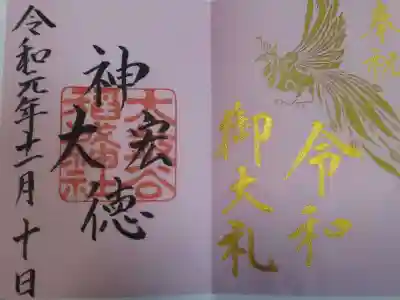 奉祝
令和
御大礼
神徳
宏大
令和元年十一月十日